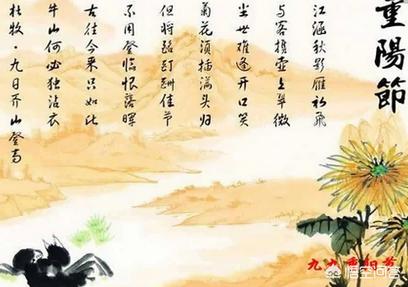 重陽節
江涵秋影雁初飞
与客携壶上翠微
尘世难逢开口笑
菊花须插满头归
但将酩酊酬佳节
不用登临恨落晖
古往今来只如此
牛山何必独沾衣
杜牧·九日齐山登高
九九重阳节
悟空问答